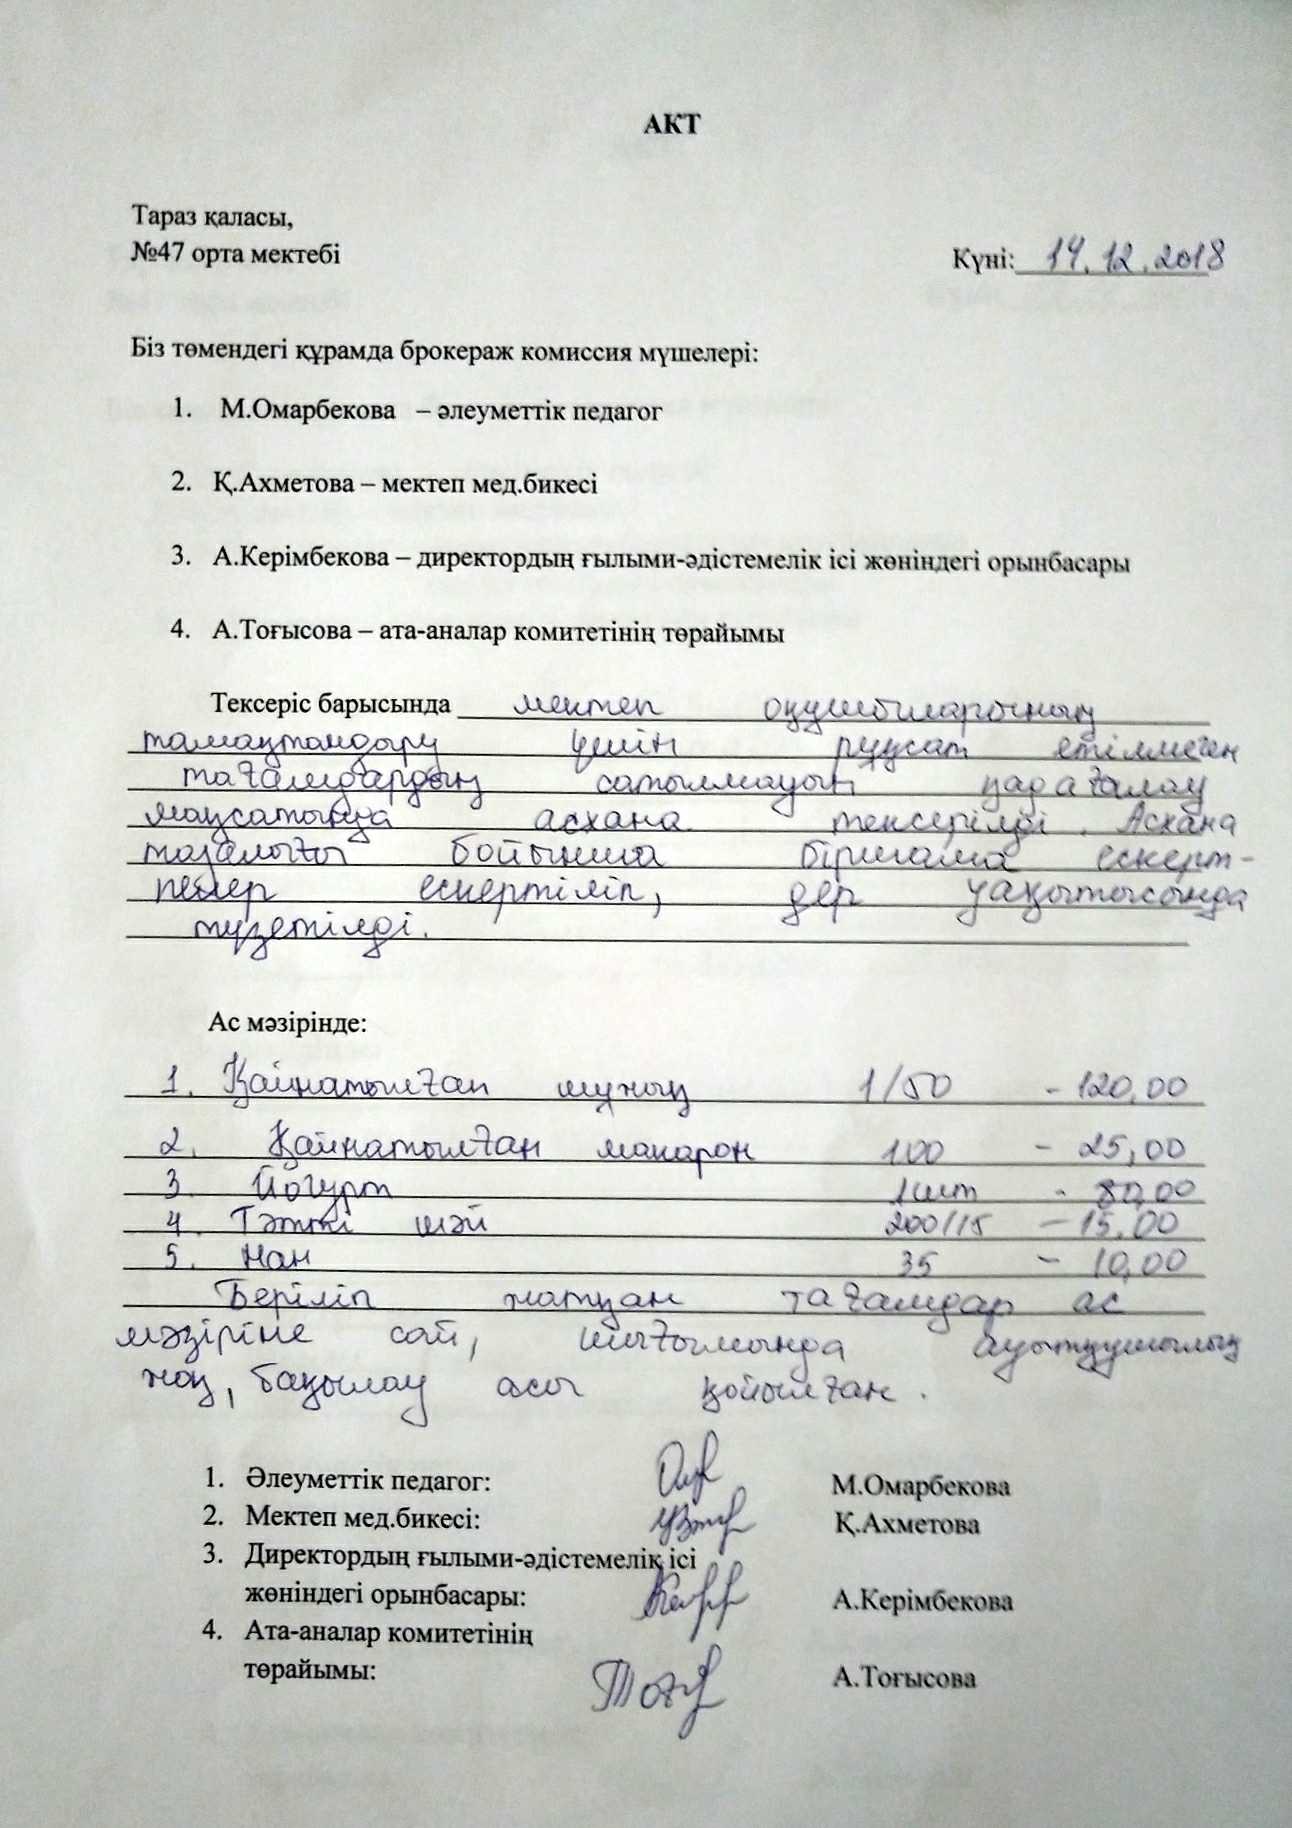 АКТ
Тараз қаласы,
№47 орта мектебі
Күні: 14.12.2018
Біз төмендегі құрамда брокераж комиссия мүшелері:
1. М.Омарбекова – әлеуметтік педагог
2. Қ.Ахметова – мектеп мед.бикесі
3. А.Керімбекова – директордың ғылыми-әдістемелік ісі жөніндегі орынбасары
4. А.Тоғысова – ата-аналар комитетінің төрайымы
Тексеріс барысында мектеп оқушыларының
тамақтандыру үшін рұқсат етілмеген
тағамдардың сатылмауын қадағалау
мақсатында асхана тексерілді. Асхана
тазалығы бойынша біршама ескерт-
пелер ескертіліп, дер уақытысында
түзетілді.
Ас мәзірінде:
1. Қайнатылған шұжық 1/50 - 120,00
2. Қайнатылған макарон 100 - 25,00
3. Йогурт 1шт - 80,00
4. Тәтті шәй 200/15 - 15,00
5. Нан 35 - 10,00
Беріліп жатқан тағамдар ас
мәзіріне сай, шығымында ауытқушылық
жоқ, бақылау асы қойылған.
1. Әлеуметтік педагог: М.Омарбекова
2. Мектеп мед.бикесі: Қ.Ахметова
3. Директордың ғылыми-әдістемелік ісі
жөніндегі орынбасары: А.Керімбекова
4. Ата-аналар комитетінің
төрайымы: А.Тоғысова